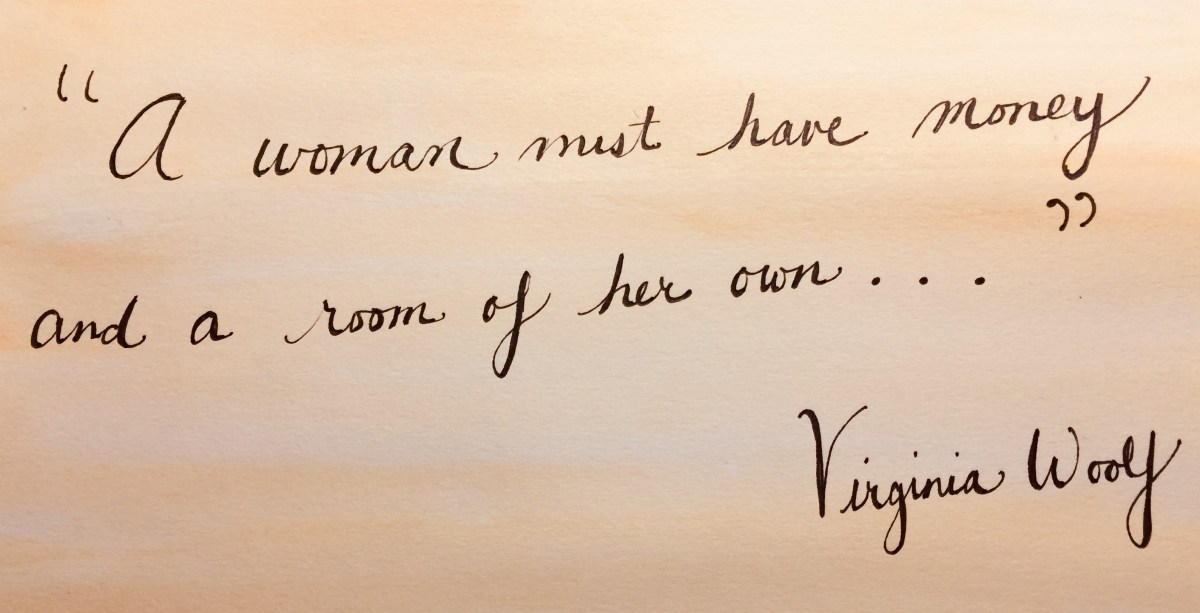 “A woman must have money
and a room of her own...”
Virginia Woolf